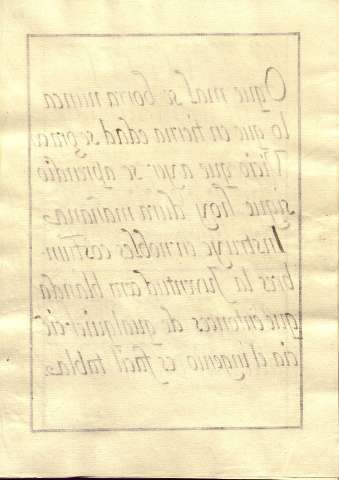 O que mal se borra nunca
lo que en tierna edad se graua.
Vicio que ayer se aprendio
sigue hoy dura mañana.
Instruye en nobles costum-
bres la Juventud blanda
que entonces de qualquier cie
cia el ingenio es facil tabla.